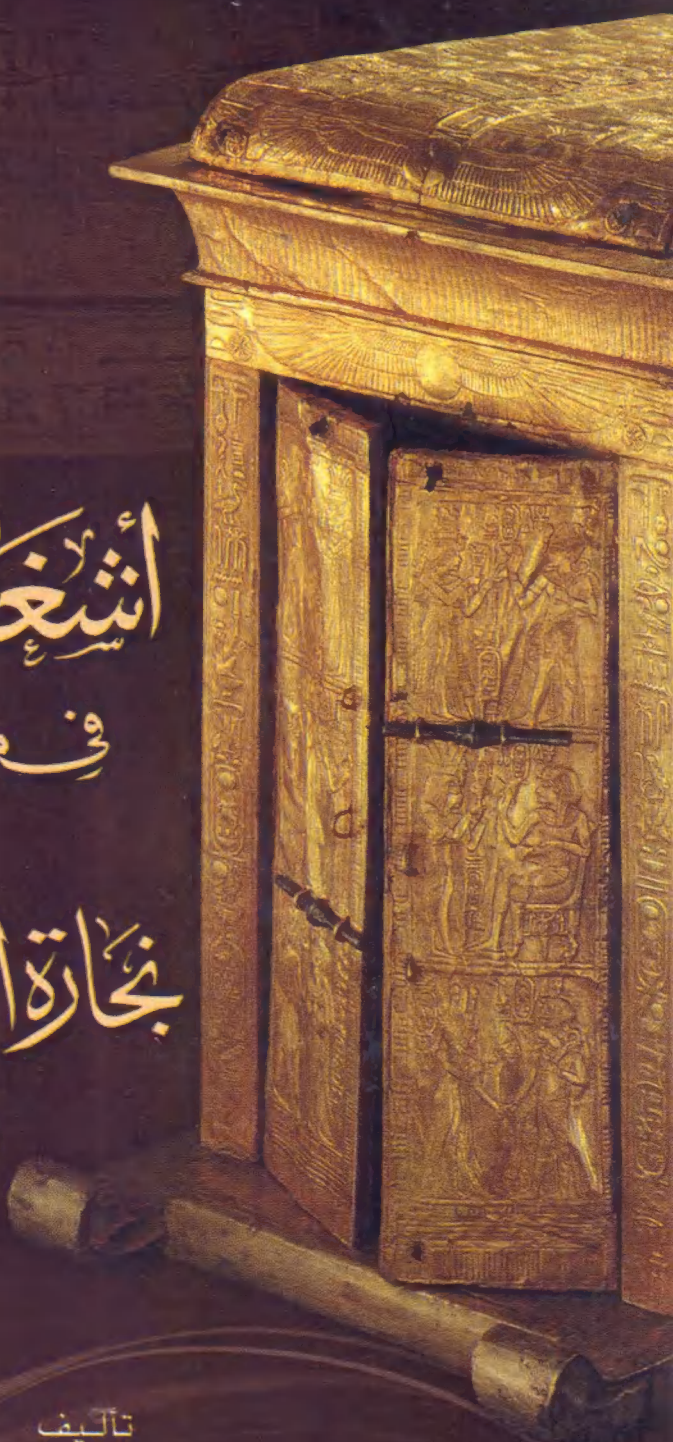 أشغ
في
نجارة ا
تأليف